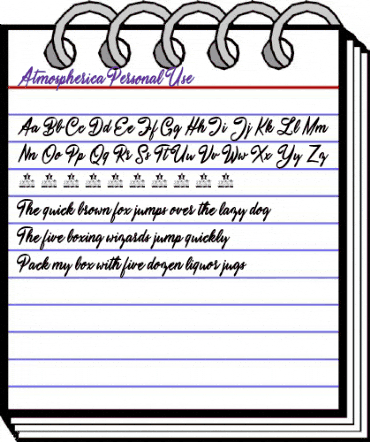 Atmospherica Personal Use
Aa Bb Cc Dd Ee Ff Gg Hh Ii Jj Kk Ll Mm
Nn Oo Pp Qq Rr Ss Tt Uu Vv Ww Xx Yy Zz
The quick brown fox jumps over the lazy dog
The five boxing wizards jump quickly
Pack my box with five dozen liquor jugs